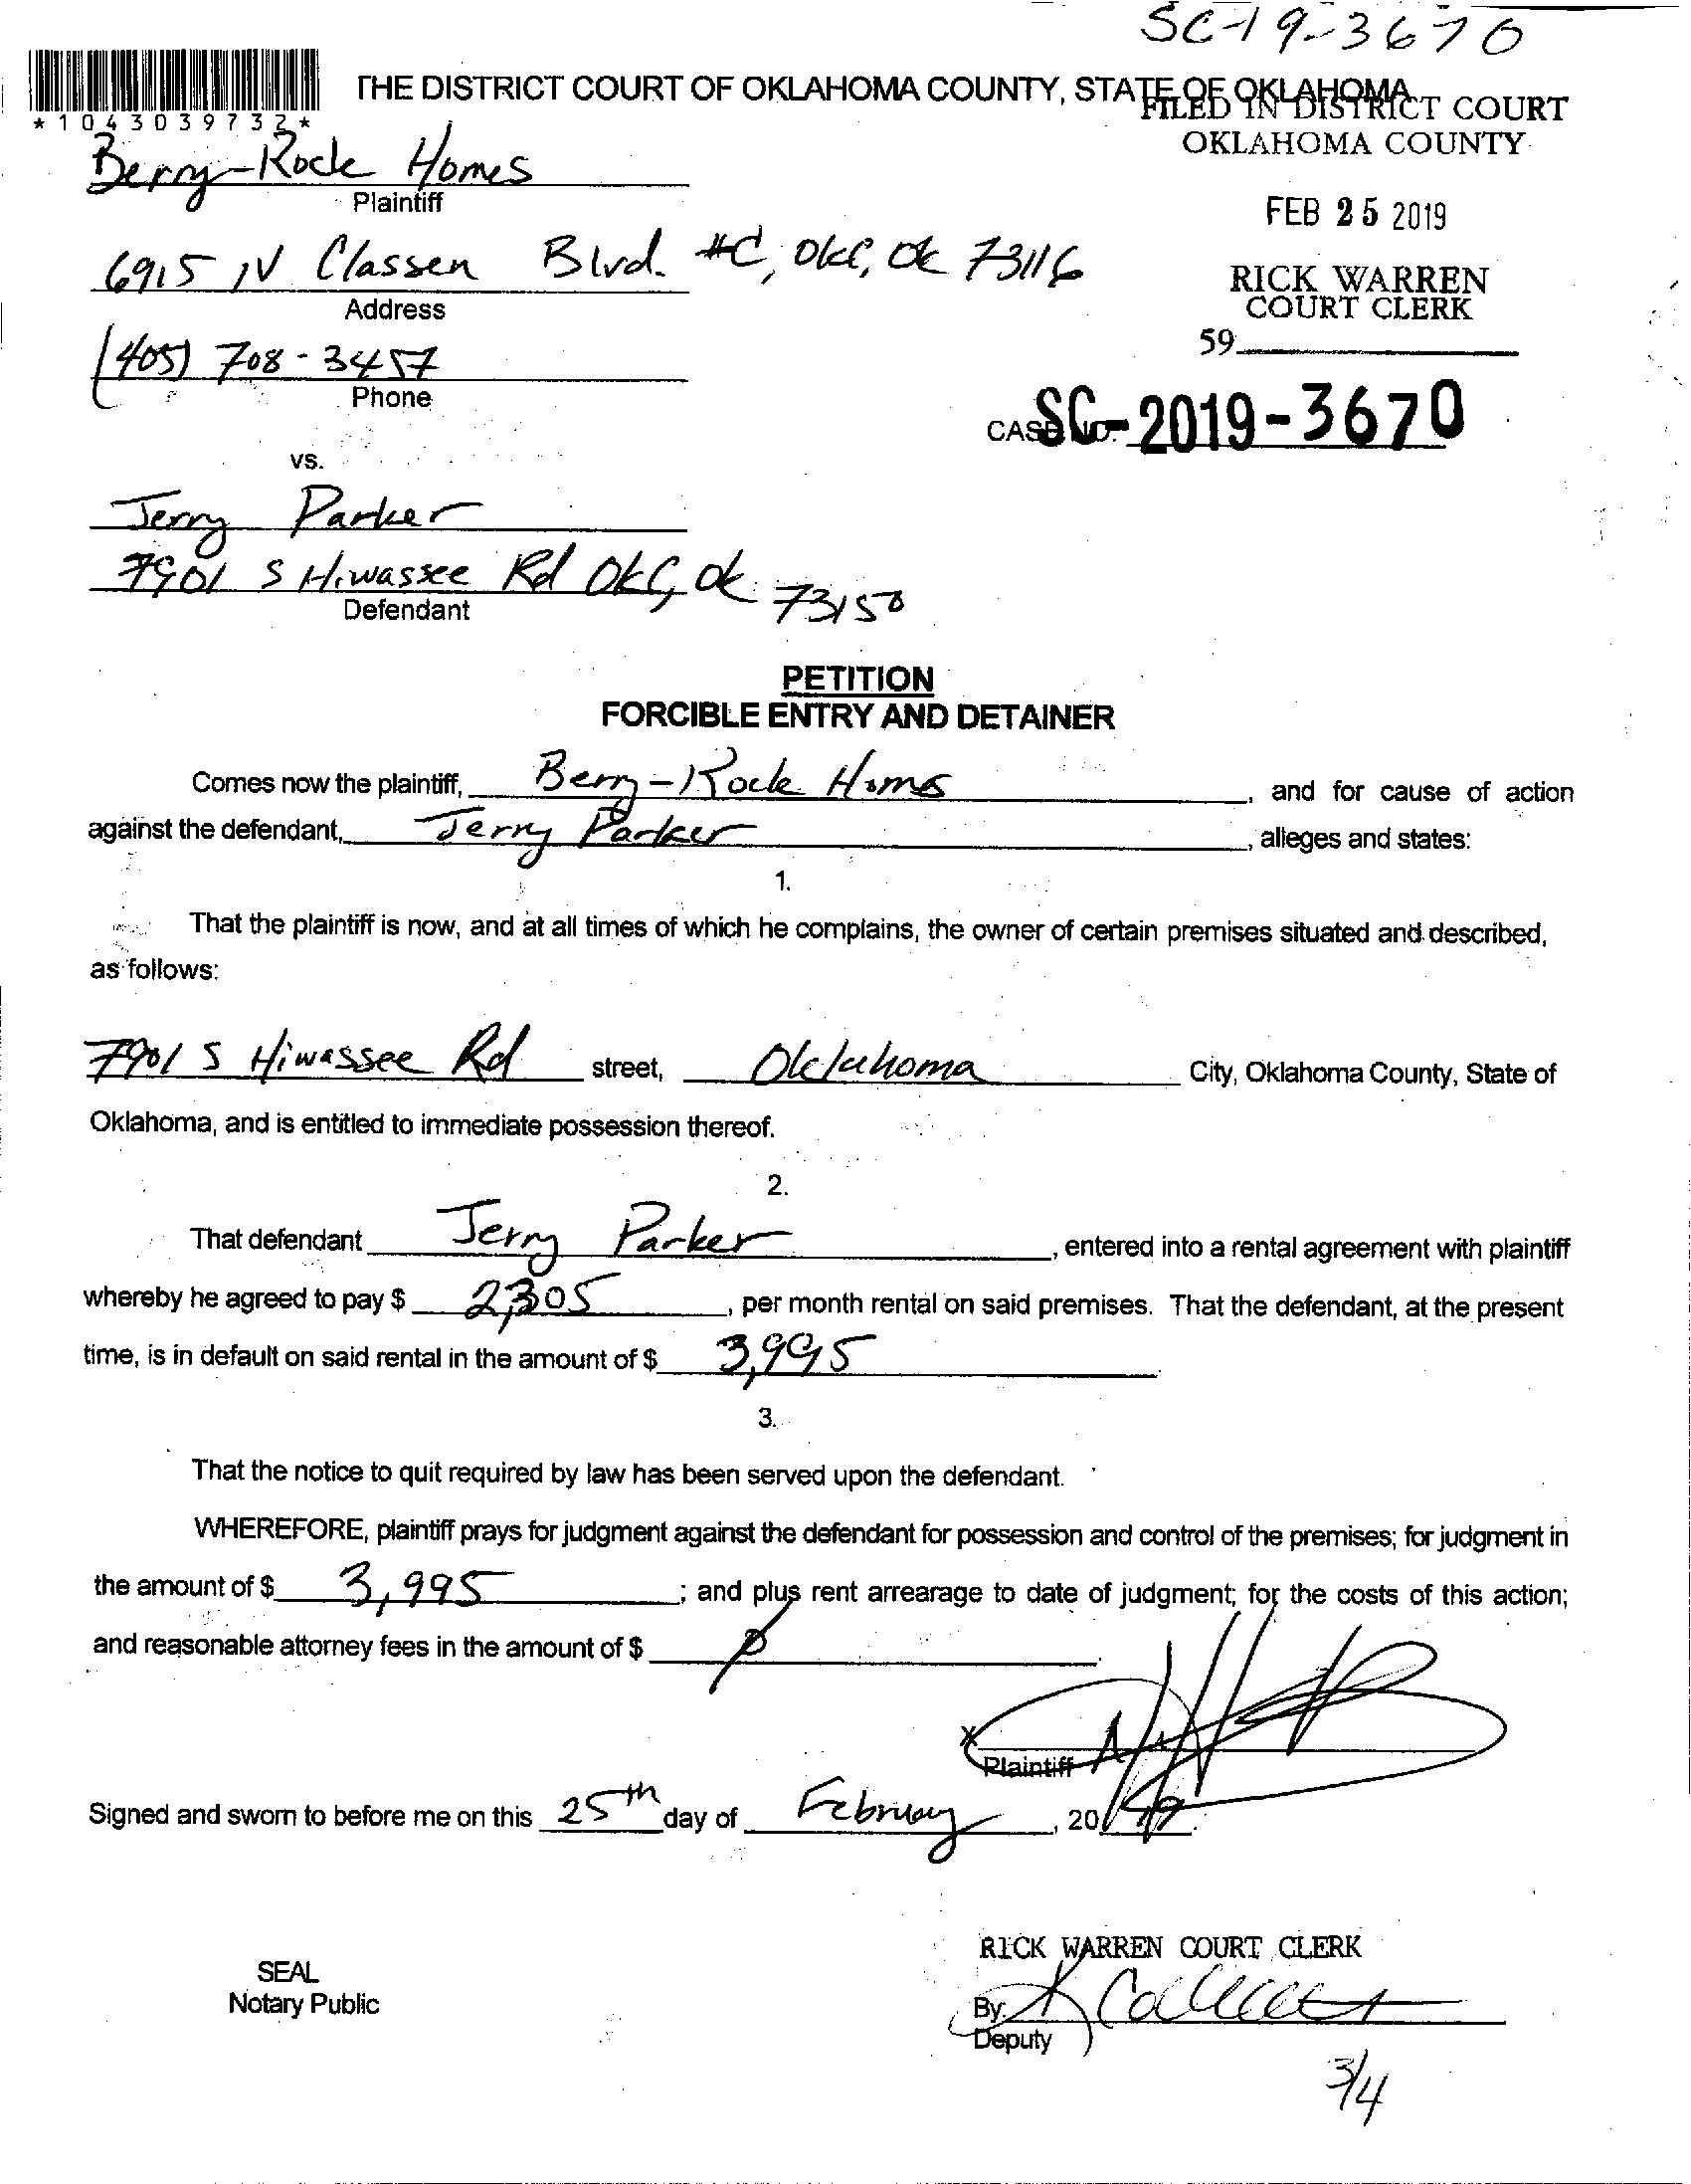 SC-19-3670
THE DISTRICT COURT OF OKLAHOMA COUNTY, STATE OF OKLAHOMA
FILED IN DISTRICT COURT
OKLAHOMA COUNTY
*1043039732*
Berry-Rock Homes
Plaintiff
FEB 25 2019
6915 N Classen Blvd. #C, OKC, OK 73116
Address
RICK WARREN
COURT CLERK
59
(405) 708-3457
Phone
CASE NO. SC-2019-3670
vs.
Jerry Parker
7901 S Hiwassee Rd OKC, OK 73150
Defendant
PETITION
FORCIBLE ENTRY AND DETAINER
Comes now the plaintiff, Berry-Rock Homes, and for cause of action
against the defendant, Jerry Parker, alleges and states:
1.
That the plaintiff is now, and at all times of which he complains, the owner of certain premises situated and described,
as follows:
7901 S Hiwassee Rd street, Oklahoma City, Oklahoma County, State of
Oklahoma, and is entitled to immediate possession thereof.
2.
That defendant Jerry Parker, entered into a rental agreement with plaintiff
whereby he agreed to pay $ 2,305, per month rental on said premises. That the defendant, at the present
time, is in default on said rental in the amount of $ 3,995.
3.
That the notice to quit required by law has been served upon the defendant.
WHEREFORE, plaintiff prays for judgment against the defendant for possession and control of the premises; for judgment in
the amount of $ 3,995; and plus rent arrearage to date of judgment; for the costs of this action;
and reasonable attorney fees in the amount of $ 0.
X
Plaintiff
Signed and sworn to before me on this 25th day of February, 2019.
RICK WARREN COURT CLERK
SEAL
Notary Public
By:
Deputy
3/4